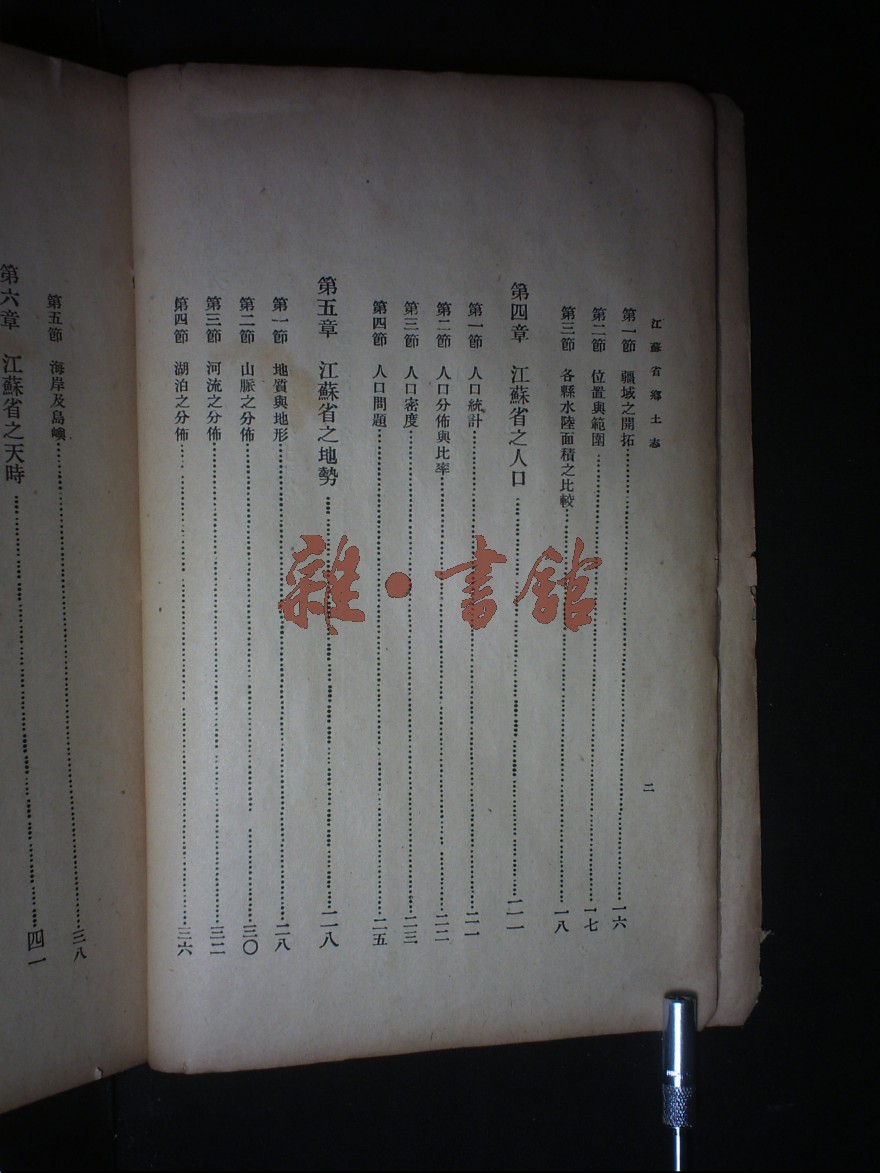 江蘇省鄉土志
二
第一節 疆域之開拓 一六
第二節 位置與範圍 一七
第三節 各縣水陸面積之比較 一八
第四章 江蘇省之人口 二一
第一節 人口統計 二一
第二節 人口分佈與比率 二二
第三節 人口密度 二三
第四節 人口問題 二五
第五章 江蘇省之地勢 二八
第一節 地質與地形 二八
第二節 山脈之分佈 三〇
第三節 河流之分佈 三二
第四節 湖泊之分佈 三六
第五節 海岸及島嶼 三八
第六章 江蘇省之天時 四一
雜·書館